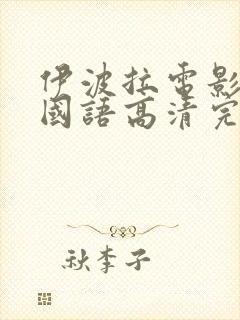 伊波拉電影
國語高清完
秋李子